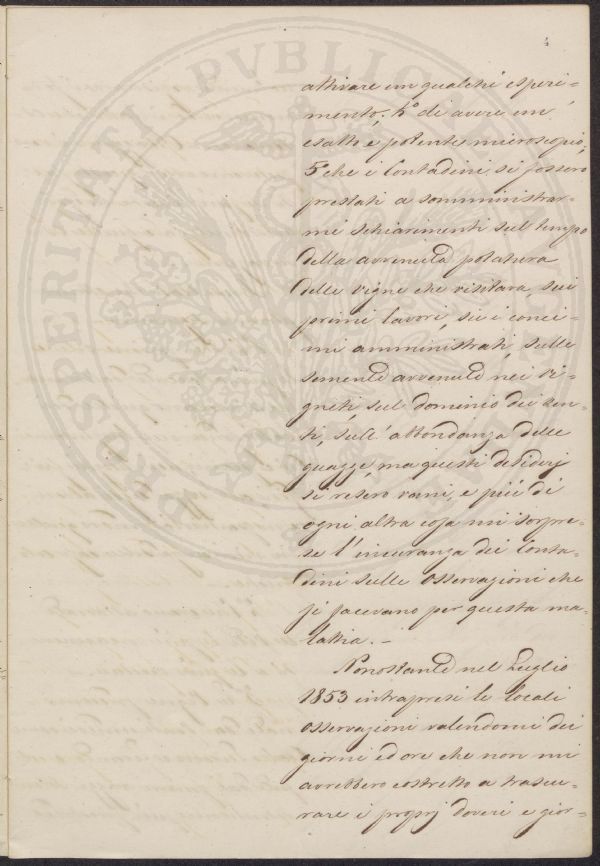 4
attivare un qualche esperi=
mento; 4° di avere un
esatto e potente microscopio,
5° che i Contadini si fossero
prestati a somministrar=
mi schiarimenti sul tempo
della avvenuta potatura
delle vigne che visitava, sui
primi lavori, sui conci=
mi amministrati, sulle
semente avvenute nei vi=
gneti, sul dominio dei ven=
ti, sull'abbondanza delle
guazze, ma questi desiderj
si resero vani, e più di
ogni altra cosa mi sorpre=
se l'incuranza dei Conta=
dini sulle osservazioni che
si facevano per questa ma=
lattia. –
Nonostante nel Luglio
1853 intrapresi le locali
osservazioni valendomi dei
giorni ed ore che non mi
avrebbero costretto a trascu=
rare i proprj doveri e gior=
PROSPERITATI PVBLICAE